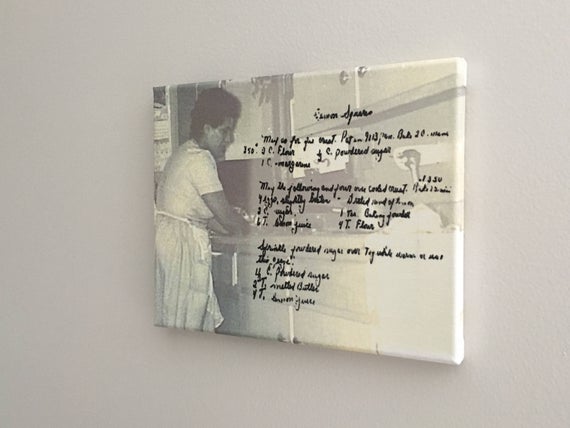 Lemon Squares
"Mix as for pie crust. Put in 9x13 pan. Bake 20 min
350. 2 C. Flour ½ C. Powdered sugar
1 C. margarine
Mix the following and pour over cooked crust.
4 eggs, slightly beaten
2 C. sugar 1 tsp. Baking powder
6 T. lemon juice 4 T. Flour
Sprinkle powdered sugar over Top while warm or use
this glaze"
C. Powdered sugar
2 T. melted Butter
4 T. Lemon juice